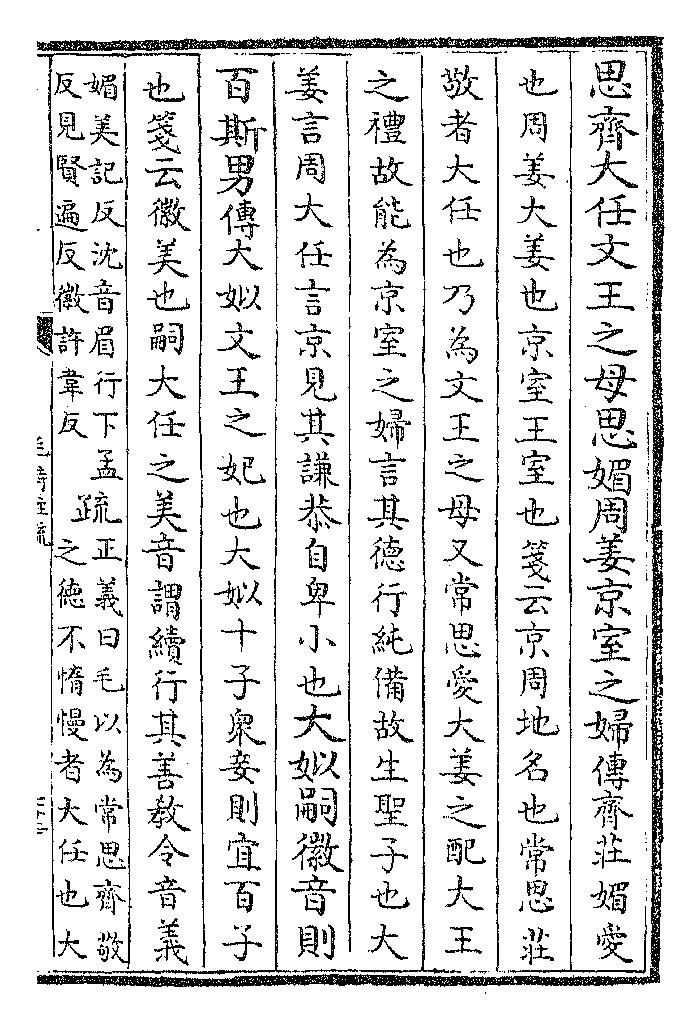 思齊大任文王之母思媚周姜京室之婦傳齊莊媚愛
也周姜大姜也京室王室也箋云京周地名也常思莊
敬者大任也乃為文王之母又常思愛大姜之配大王
之禮故能為京室之婦言其德行純備故生聖子也大
姜言周大任言京見其謙恭自卑小也大姒嗣徽音則
百斯男傳大姒文王之妃也大姒十子衆妾則宜百子
也箋云徽美也嗣大任之美音謂續行其善教令音義
媚美記反沈音眉行下孟
反見賢遍反徽許韋反
疏正義曰毛以為常思齊敬
之德不惰慢者大任也大